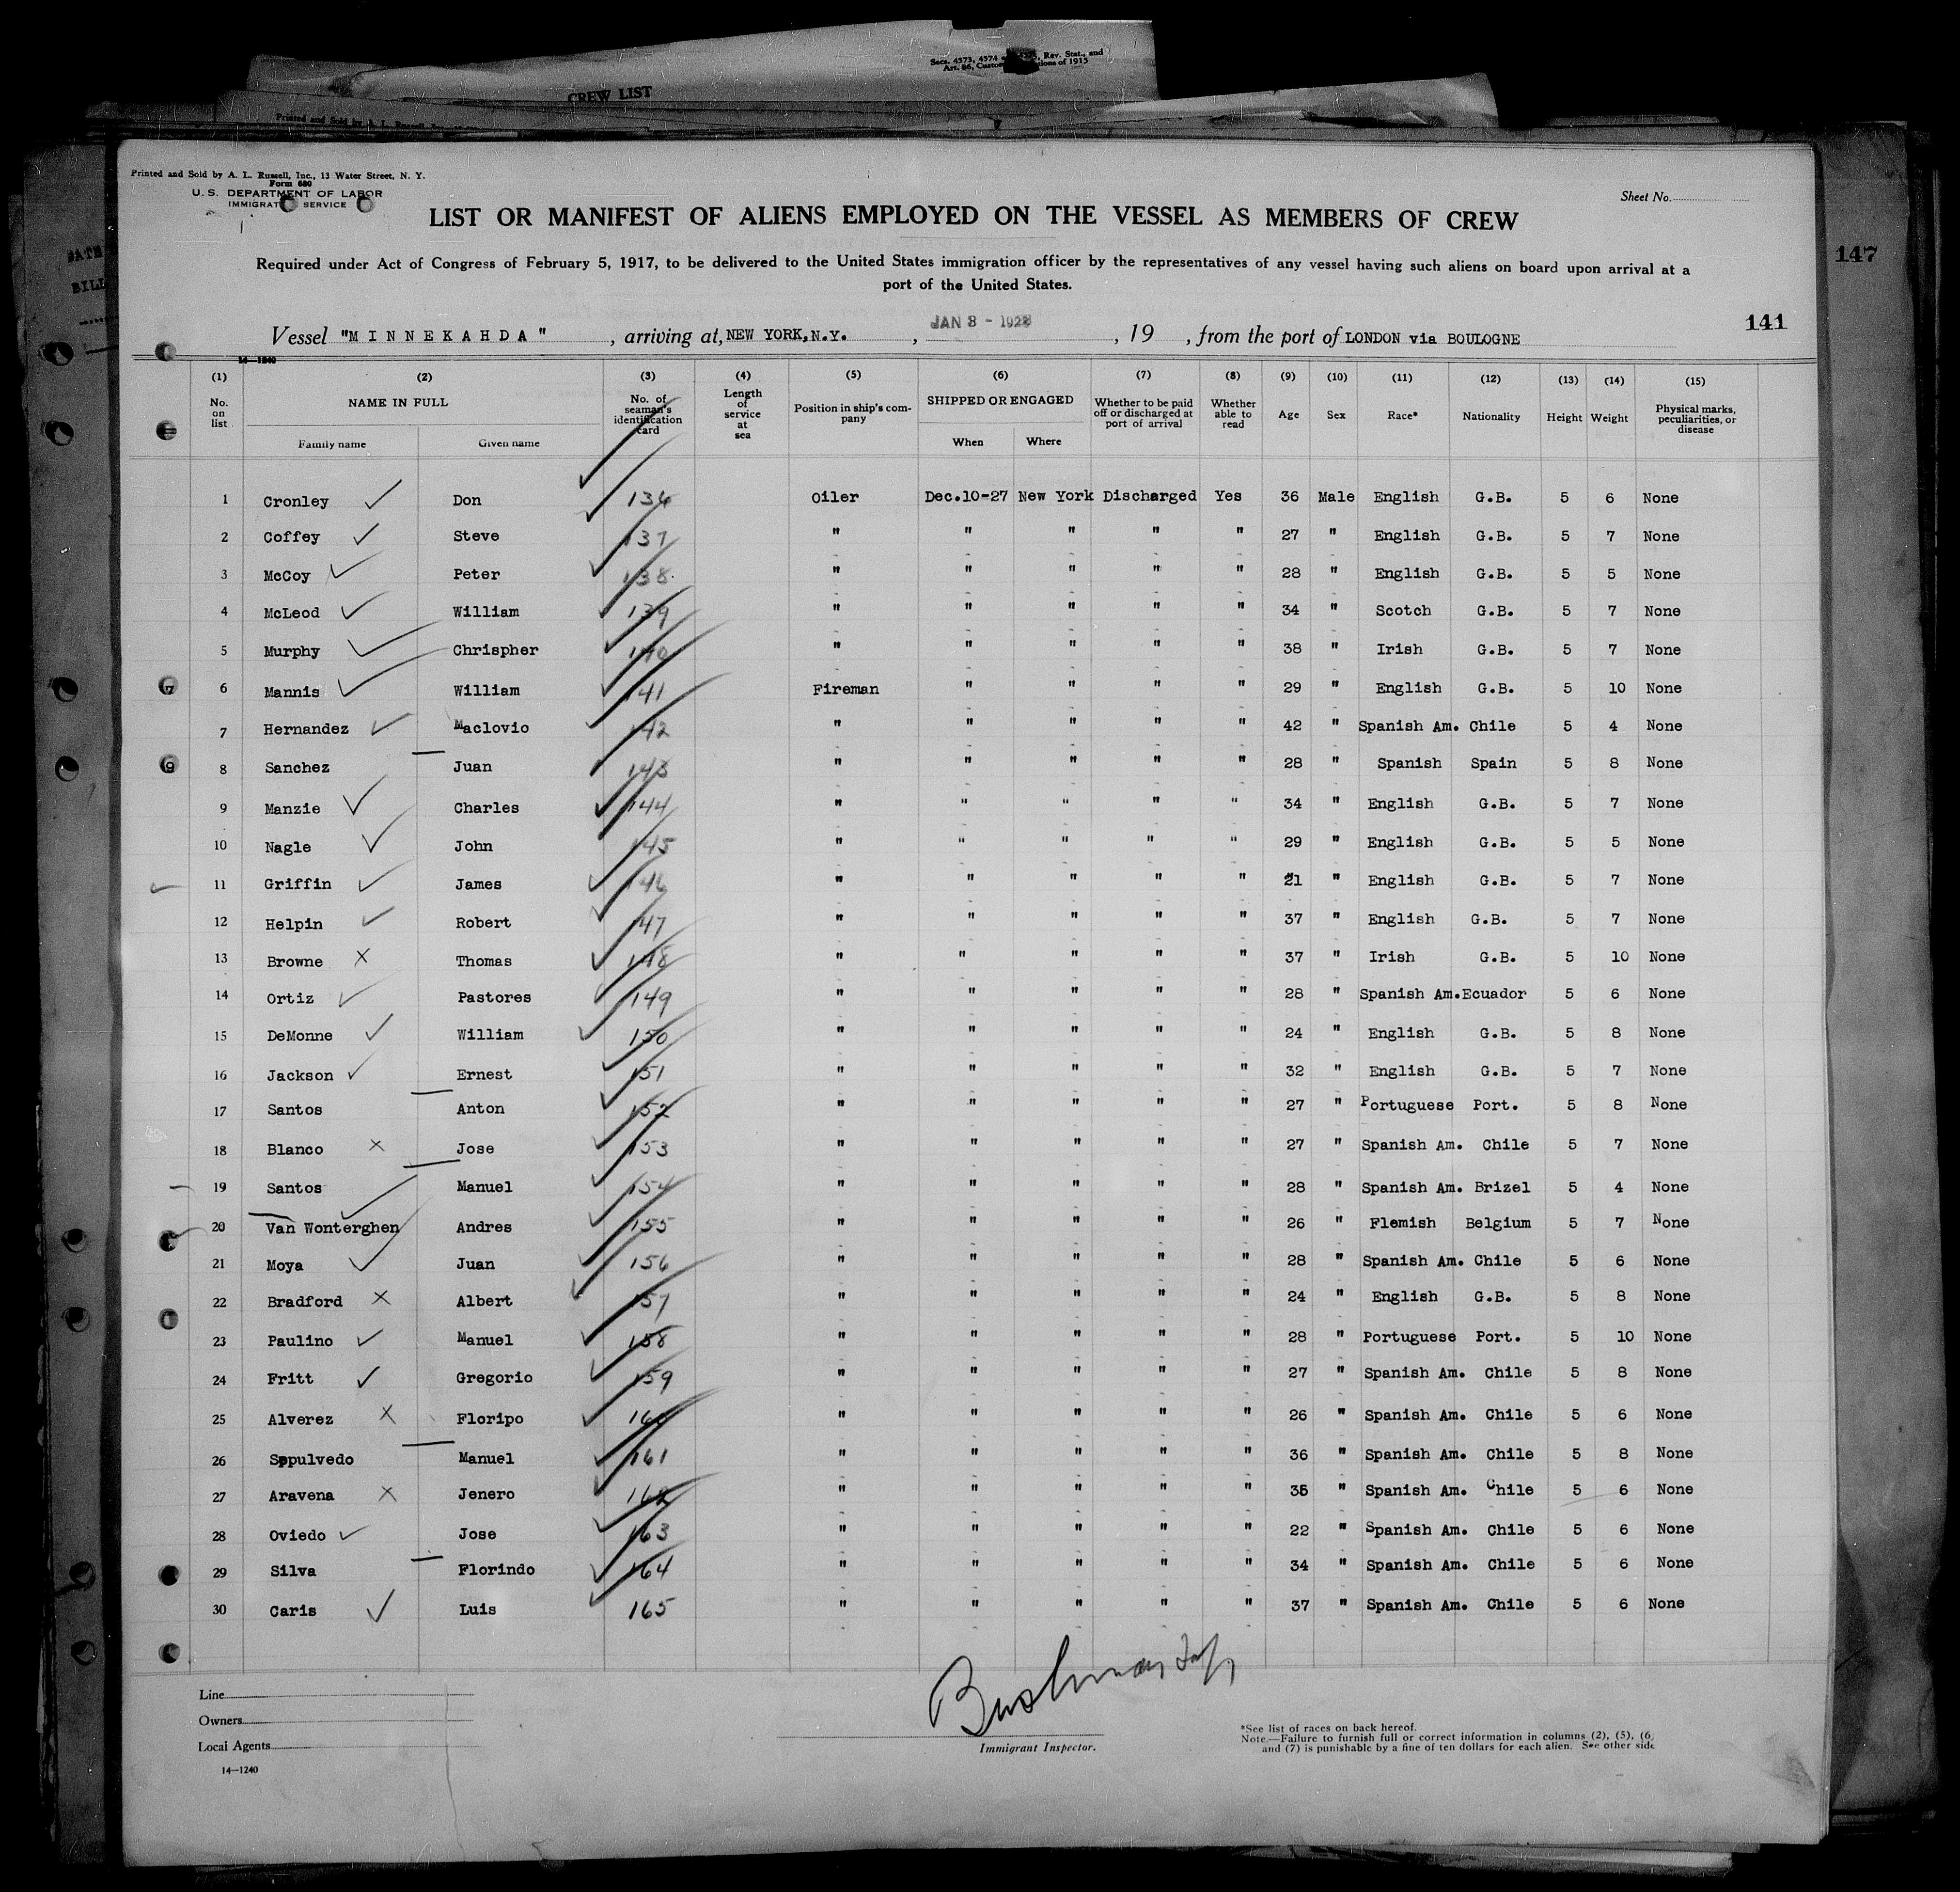 Secs. 4573, 4574 Rev. Stat., and
Art. 86, Custom tions of 1915
CREW LIST
Printed and Sold by A. L. Russell, Inc.
Printed and Sold by A. L. Russell, Inc., 13 Water Street, N. Y.
Form 680
U. S. DEPARTMENT OF LABOR
IMMIGRAT SERVICE
Sheet No.
LIST OR MANIFEST OF ALIENS EMPLOYED ON THE VESSEL AS MEMBERS OF CREW
147
Required under Act of Congress of February 5, 1917, to be delivered to the United States immigration officer by the representatives of any vessel having such aliens on board upon arrival at a
port of the United States.
141
Vessel "MINNEKAHDA", arriving at, NEW YORK, N.Y., JAN 3 - 1928, 19 , from the port of LONDON via BOULOGNE
14—1240
(1) (2) (3) (4) (5) (6) (7) (8) (9) (10) (11) (12) (13) (14) (15)
No. on list NAME IN FULL Family name Given name No. of seaman's identification card Length of service at sea Position in ship's company SHIPPED OR ENGAGED When Where Whether to be paid off or discharged at port of arrival Whether able to read Age Sex Race* Nationality Height Weight Physical marks, peculiarities, or disease
1 Cronley Don 136 Oiler Dec.10-27 New York Discharged Yes 36 Male English G.B. 5 6 None
2 Coffey Steve 137 " " " " " 27 " English G.B. 5 7 None
3 McCoy Peter 138 " " " " " 28 " English G.B. 5 5 None
4 McLeod William 139 " " " " " 34 " Scotch G.B. 5 7 None
5 Murphy Chrispher 140 " " " " " 38 " Irish G.B. 5 7 None
6 Mannis William 141 Fireman " " " " 29 " English G.B. 5 10 None
7 Hernandez Maclovio 142 " " " " " 42 " Spanish Am. Chile 5 4 None
8 Sanchez Juan 143 " " " " " 28 " Spanish Spain 5 8 None
9 Manzie Charles 144 " " " " " 34 " English G.B. 5 7 None
10 Nagle John 145 " " " " " 29 " English G.B. 5 5 None
11 Griffin James 146 " " " " " 21 " English G.B. 5 7 None
12 Helpin Robert 147 " " " " " 37 " English G.B. 5 7 None
13 Browne Thomas 148 " " " " " 37 " Irish G.B. 5 10 None
14 Ortiz Pastores 149 " " " " " 28 " Spanish Am. Ecuador 5 6 None
15 DeMonne William 150 " " " " " 24 " English G.B. 5 8 None
16 Jackson Ernest 151 " " " " " 32 " English G.B. 5 7 None
17 Santos Anton 152 " " " " " 27 " Portuguese Port. 5 8 None
18 Blanco Jose 153 " " " " " 27 " Spanish Am. Chile 5 7 None
19 Santos Manuel 154 " " " " " 28 " Spanish Am. Brizel 5 4 None
20 Van Wonterghen Andres 155 " " " " " 26 " Flemish Belgium 5 7 None
21 Moya Juan 156 " " " " " 28 " Spanish Am. Chile 5 6 None
22 Bradford Albert 157 " " " " " 24 " English G.B. 5 8 None
23 Paulino Manuel 158 " " " " " 28 " Portuguese Port. 5 10 None
24 Fritt Gregorio 159 " " " " " 27 " Spanish Am. Chile 5 8 None
25 Alverez Floripo 160 " " " " " 26 " Spanish Am. Chile 5 6 None
26 Sppulvedo Manuel 161 " " " " " 36 " Spanish Am. Chile 5 8 None
27 Aravena Jenero 162 " " " " " 35 " Spanish Am. Chile 5 6 None
28 Oviedo Jose 163 " " " " " 22 " Spanish Am. Chile 5 6 None
29 Silva Florindo 164 " " " " " 34 " Spanish Am. Chile 5 6 None
30 Caris Luis 165 " " " " " 37 " Spanish Am. Chile 5 6 None
Line
Owners
Local Agents
14—1240
Immigrant Inspector.
*See list of races on back hereof.
Note.—Failure to furnish full or correct information in columns (2), (5), (6)
and (7) is punishable by a fine of ten dollars for each alien. See other side